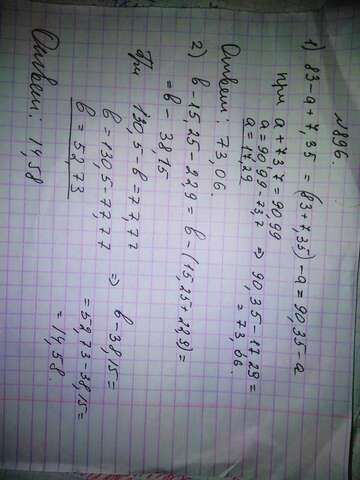 №896.
1) 83-a+7,35 = (83+7,35)-a = 90,35-a
при a+73,7=90,99
a=90,99-73,7 ⇒ 90,35-17,29=
a=17,29 = 73,06.
Ответ: 73,06.
2) b-15,25-22,9 = b-(15,25+22,9)=
= b-38,15
При 130,5-b=77,77 ⇒ b-38,15=
b=130,5-77,77 =52,73-38,15=
b=52,73 =14,58.
Ответ: 14,58